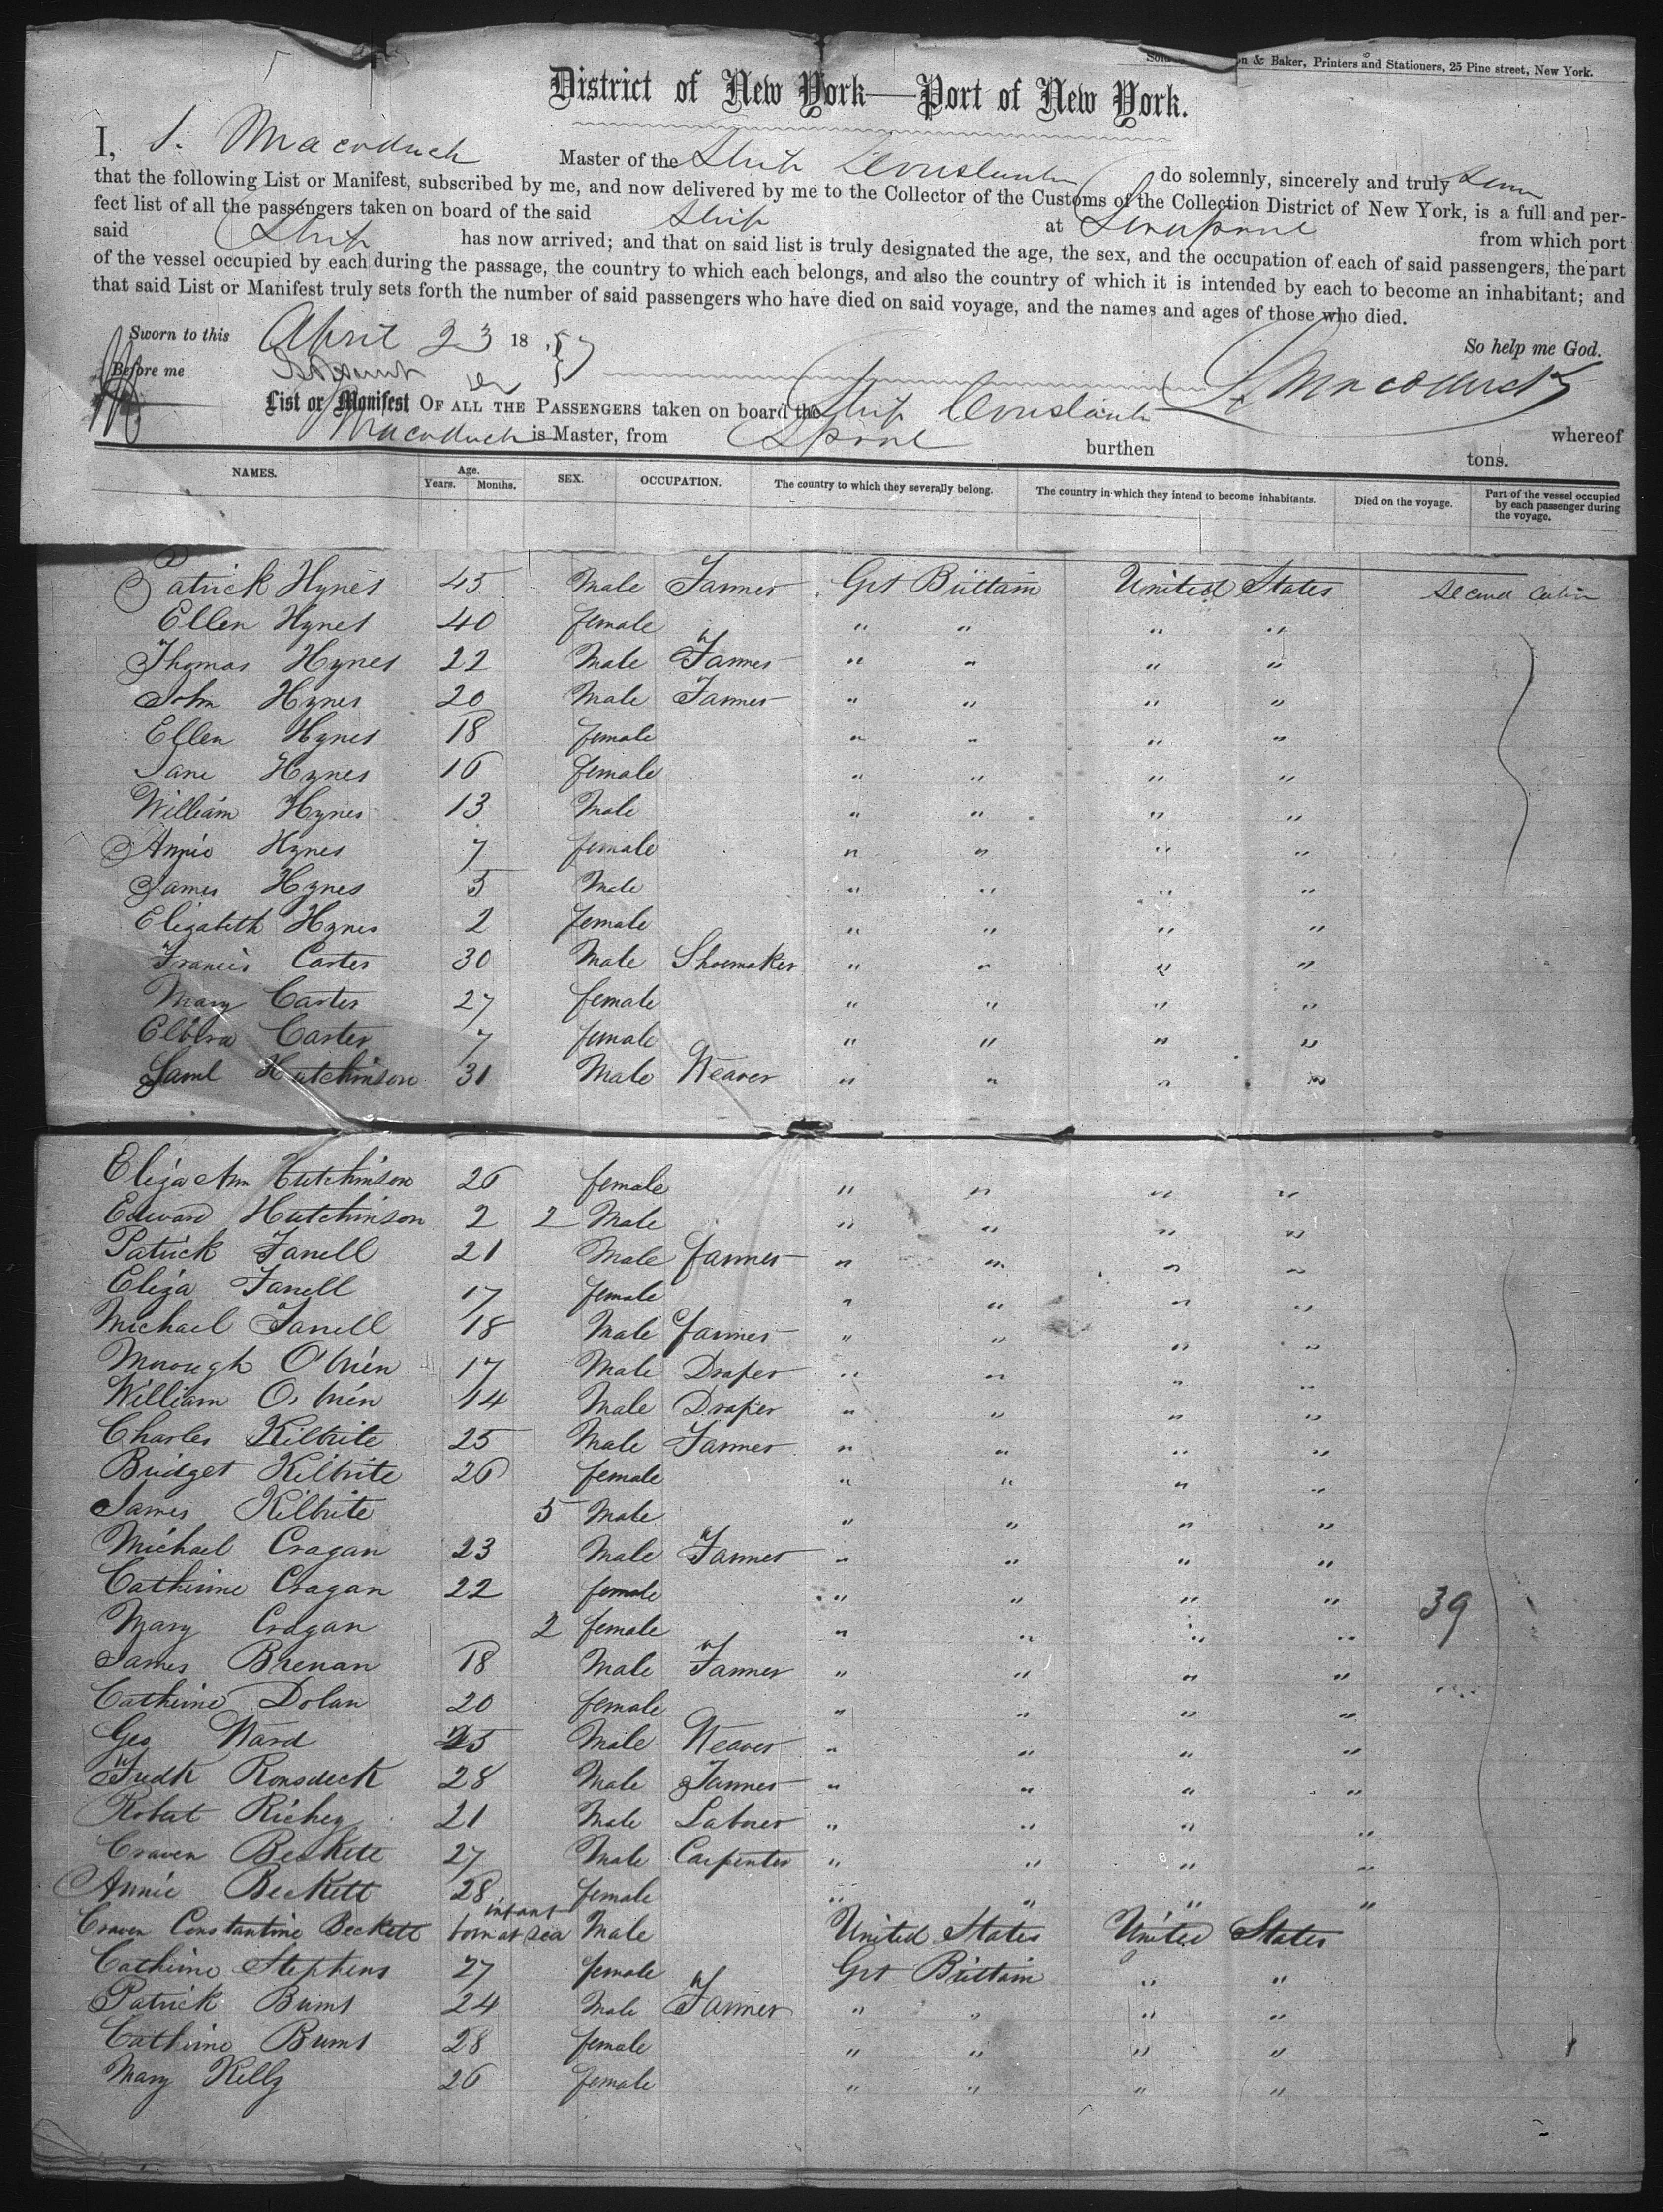 & Baker, Printers and Stationers, 25 Pine street, New York.
District of New York—Port of New York.
I, S. Macoduck Master of the Ship Constantine do solemnly, sincerely and truly
that the following List or Manifest, subscribed by me, and now delivered by me to the Collector of the Customs of the Collection District of New York, is a full and per-
fect list of all the passengers taken on board of the said Ship at Liverpool from which port
said Ship has now arrived; and that on said list is truly designated the age, the sex, and the occupation of each of said passengers, the part
of the vessel occupied by each during the passage, the country to which each belongs, and also the country of which it is intended by each to become an inhabitant; and
that said List or Manifest truly sets forth the number of said passengers who have died on said voyage, and the names and ages of those who died.
So help me God.
Sworn to this April 23 1857
Before me S. Macoduck
List or Manifest OF ALL THE PASSENGERS taken on board the Ship Constantine whereof
Macoduck is Master, from Lpool burthen tons.
NAMES. Age. Years. Months. SEX. OCCUPATION. The country to which they severally belong. The country in which they intend to become inhabitants. Died on the voyage. Part of the vessel occupied by each passenger during the voyage.
Patrick Hynes 45 Male Farmer Grt Brittain United States Second Cabin
Ellen Hynes 40 female " " " "
Thomas Hynes 22 Male Farmer " " " "
John Hynes 20 Male Farmer " " " "
Ellen Hynes 18 female " " " "
Jane Hynes 16 female " " " "
William Hynes 13 Male " " " "
Annie Hynes 7 female " " " "
James Hynes 5 Male " " " "
Elizabeth Hynes 2 female " " " "
Francis Carter 30 Male Shoemaker " " " "
Mary Carter 27 female " " " "
Carter 7 female " " " "
Saml Hutchinson 31 Male Weaver " " " "
Eliza Ann Hutchinson 26 female " " " "
Edward Hutchinson 2 2 Male " " " "
Patrick Farrell 21 Male farmer " " " "
Eliza Farrell 17 female " " " "
Michael Farrell 18 Male farmer " " " "
Morough O'brien 17 Male Draper " " " "
William O'brien 14 Male Draper " " " "
Charles Kilbrite 25 Male Farmer " " " "
Bridget Kilbrite 26 female " " " "
James Kilbrite 5 Male " " " "
Michael Cragan 23 Male Farmer " " " "
Catherine Cragan 22 female " " " " 39
Mary Cragan 2 female " " " "
James Brenan 18 Male Farmer " " " "
Catherine Dolan 20 female " " " "
Geo Ward 25 Male Weaver " " " "
Fredk Ronsdeck 28 Male Farmer " " " "
Robert Richey 21 Male Laborer " " " "
Craven Beckett 27 Male Carpenter " " " "
Annie Beckett 28 female " " " "
Craven Constantine Beckett infant born at sea Male United States United States
Catherine Stephens 27 female Grt Brittain " "
Patrick Burns 24 Male Farmer " " " "
Catherine Burns 28 female " " " "
Mary Kelly 26 female " " " "